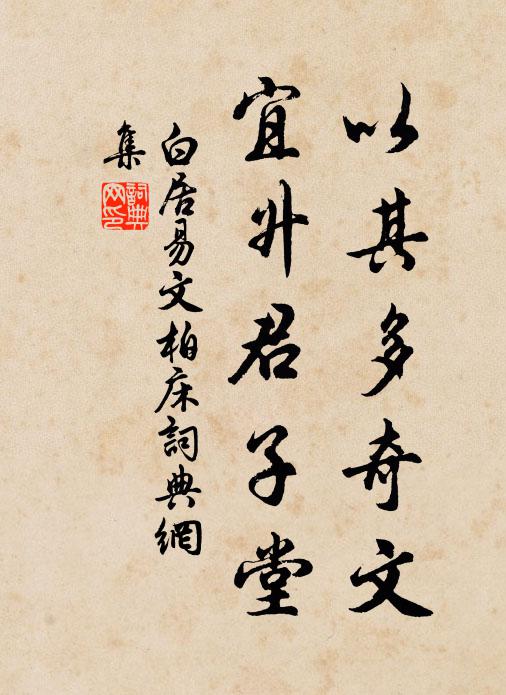 以其多奇文
宜升君子堂
白居易文柏床詞典網
集
詞典
网印